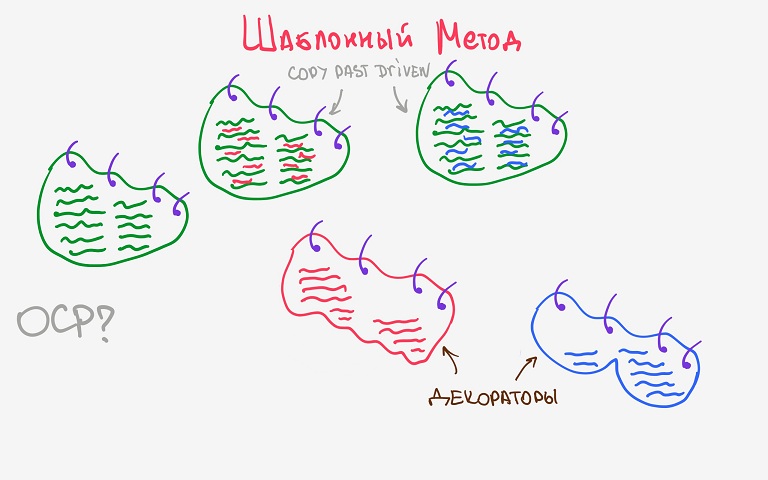 Шаблонный Метод
COPY PAST DRIVEN
OCP?
ДЕКОРАТОРЫ